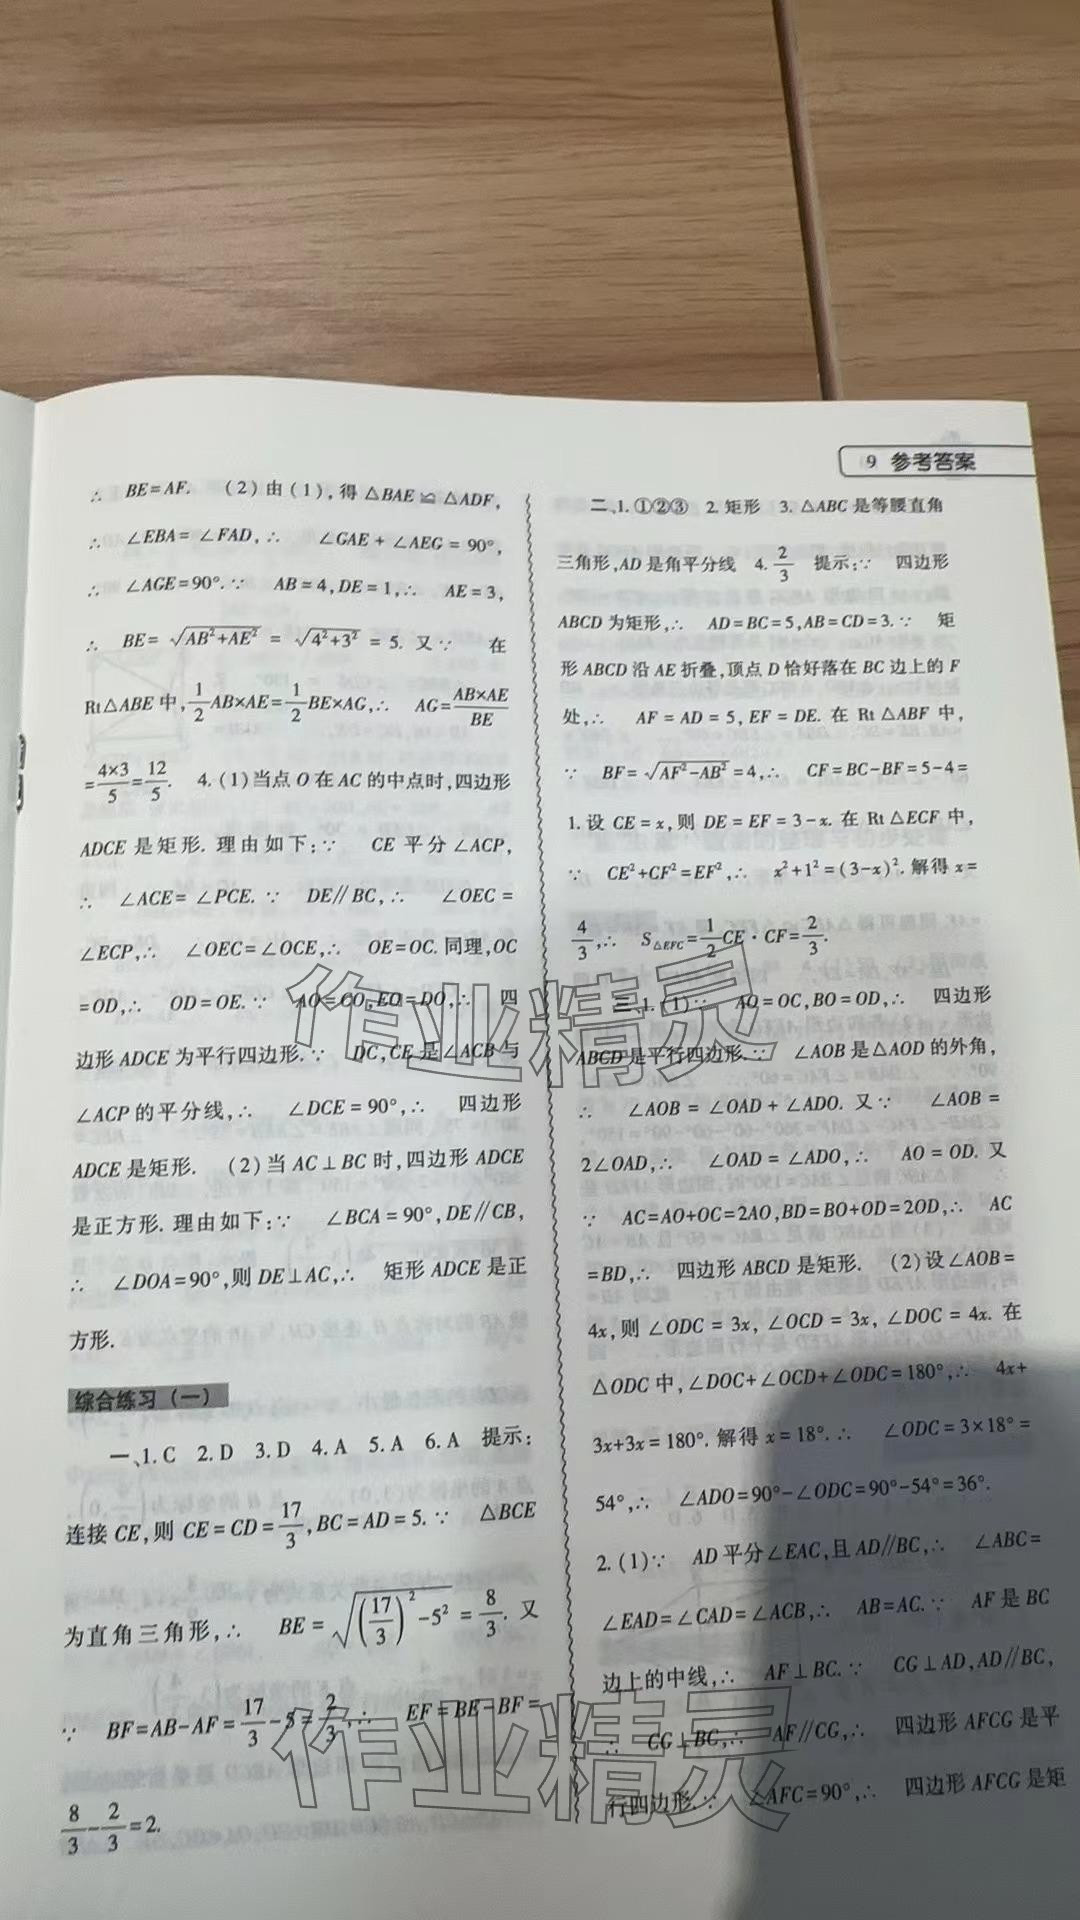 9 参考答案
∴ BE=AF. (2)由(1),得△BAE≌△ADF,
∴ ∠EBA=∠FAD,∴ ∠GAE+∠AEG=90°,
∴ ∠AGE=90°.∵ AB=4,DE=1,∴ AE=3,
∴ BE=√(AB²+AE²)=√(4²+3²)=5. 又∵ 在
Rt△ABE中,1/2AB×AE=1/2BE×AG,∴ AG=AB×AE/BE
=4×3/5=12/5. 4.(1)当点O在AC的中点时,四边形
ADCE是矩形. 理由如下:∵ CE平分∠ACP,
∴ ∠ACE=∠PCE. ∵ DE∥BC,∴ ∠OEC=
∠ECP,∴ ∠OEC=∠OCE,∴ OE=OC. 同理,OC
=OD,∴ OD=OE. ∵ AO=CO,EO=DO,∴ 四
边形ADCE为平行四边形.∵ DC,CE是∠ACB与
∠ACP的平分线,∴ ∠DCE=90°,∴ 四边形
ADCE是矩形. (2)当AC⊥BC时,四边形ADCE
是正方形. 理由如下:∵ ∠BCA=90°,DE∥CB,
∴ ∠DOA=90°,则DE⊥AC,∴ 矩形ADCE是正
方形.
综合练习(一)
一、1. C 2. D 3. D 4. A 5. A 6. A 提示:
连接CE,则CE=CD=17/3,BC=AD=5.∵ △BCE
为直角三角形,∴ BE=√((17/3)²-5²)=8/3. 又
∵ BF=AB-AF=17/3-5=2/3,∴ EF=BE-BF=
8/3-2/3=2.
二、1. ①②③ 2. 矩形 3. △ABC是等腰直角
三角形,AD是角平分线 4. 2/3 提示:∵ 四边形
ABCD为矩形,∴ AD=BC=5,AB=CD=3.∵ 矩
形ABCD沿AE折叠,顶点D恰好落在BC边上的F
处,∴ AF=AD=5,EF=DE. 在Rt△ABF中,
∵ BF=√(AF²-AB²)=4,∴ CF=BC-BF=5-4=
1. 设CE=x,则DE=EF=3-x. 在Rt△ECF中,
∵ CE²+CF²=EF²,∴ x²+1²=(3-x)². 解得x=
4/3,∴ S△EFC=1/2CE·CF=2/3.
三、1. (1)∵ AO=OC,BO=OD,∴ 四边形
ABCD是平行四边形.∵ ∠AOB是△AOD的外角,
∴ ∠AOB=∠OAD+∠ADO. 又∵ ∠AOB=
2∠OAD,∴ ∠OAD=∠ADO,∴ AO=OD. 又
∵ AC=AO+OC=2AO,BD=BO+OD=2OD,∴ AC
=BD,∴ 四边形ABCD是矩形. (2)设∠AOB=
4x,则∠ODC=3x,∠OCD=3x,∠DOC=4x. 在
△ODC中,∠DOC+∠OCD+∠ODC=180°,∴ 4x+
3x+3x=180°. 解得x=18°.∴ ∠ODC=3×18°=
54°,∴ ∠ADO=90°-∠ODC=90°-54°=36°.
2. (1)∵ AD平分∠EAC,且AD∥BC,∴ ∠ABC=
∠EAD=∠CAD=∠ACB,∴ AB=AC.∵ AF是BC
边上的中线,∴ AF⊥BC.∵ CG⊥AD,AD∥BC,
∴ CG⊥BC,∴ AF∥CG,∴ 四边形AFCG是平
行四边形.∵ ∠AFC=90°,∴ 四边形AFCG是矩
作业精灵
作业精灵